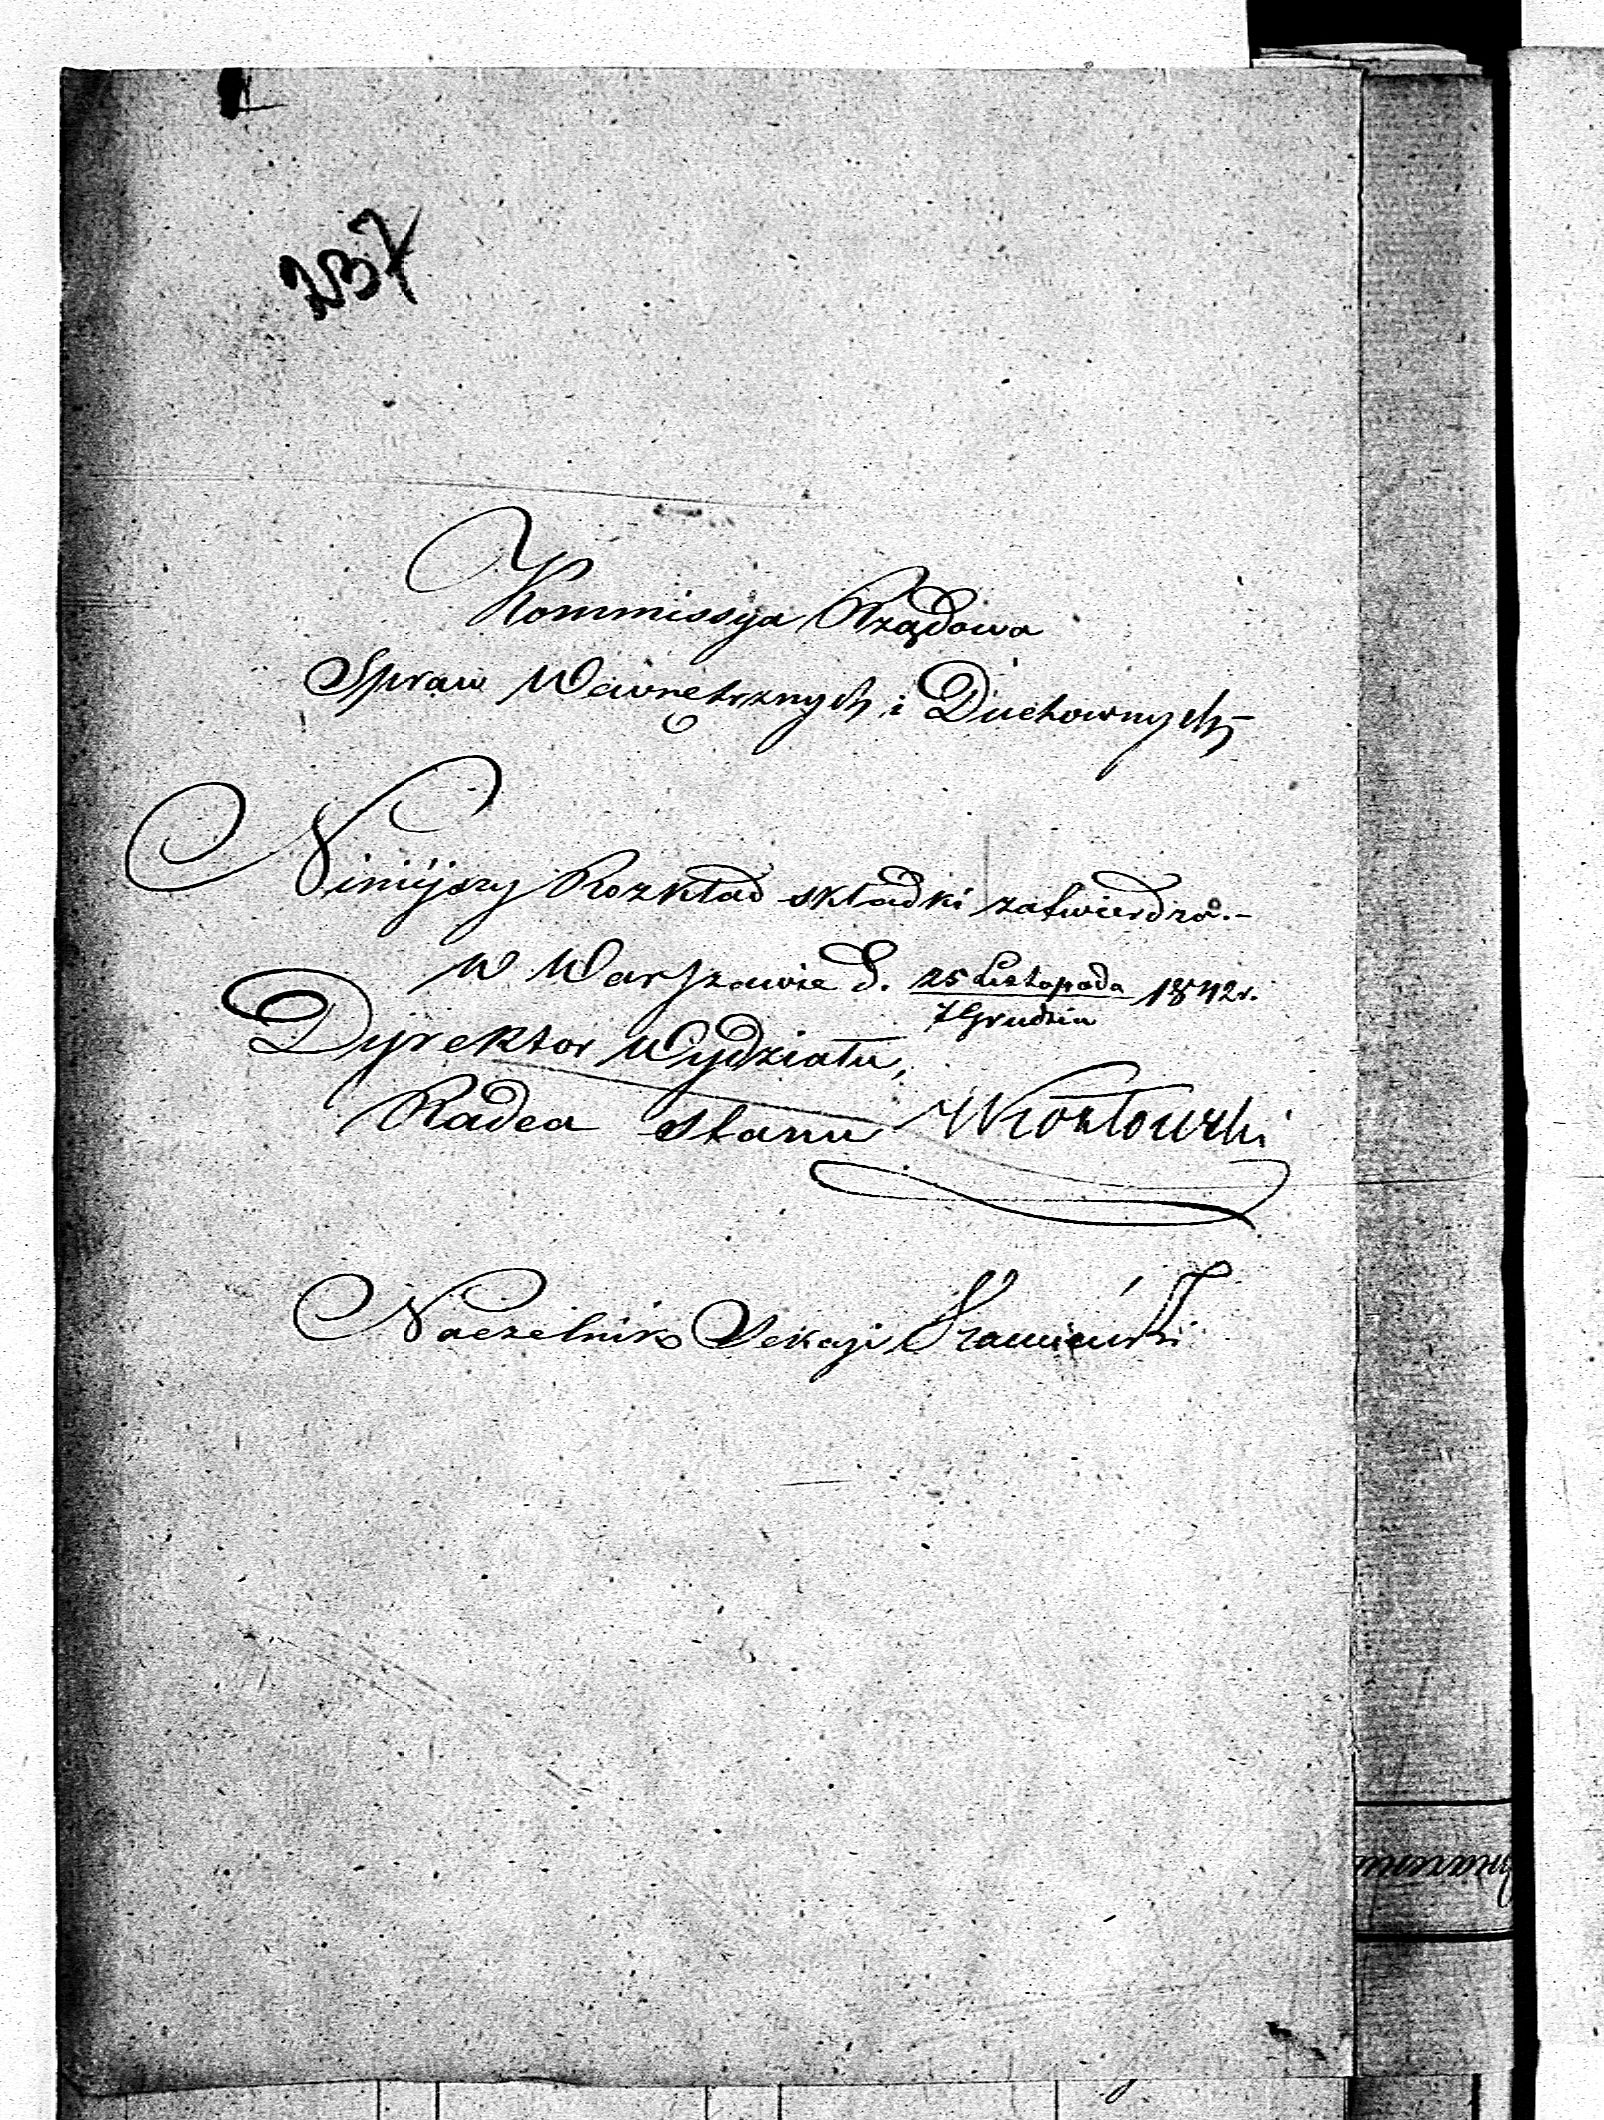 237
Kommissya Rządowa
Spraw Wewnętrznych i Duchownych
Ninijszy Rozkład składki zatwierdza.-
w Warszawie d. 25 Listopada 1842r.
7 Grudnia
Dyrektor Wydziału,
Radca Stanu Kozłowski
Naczelnik Sekcji